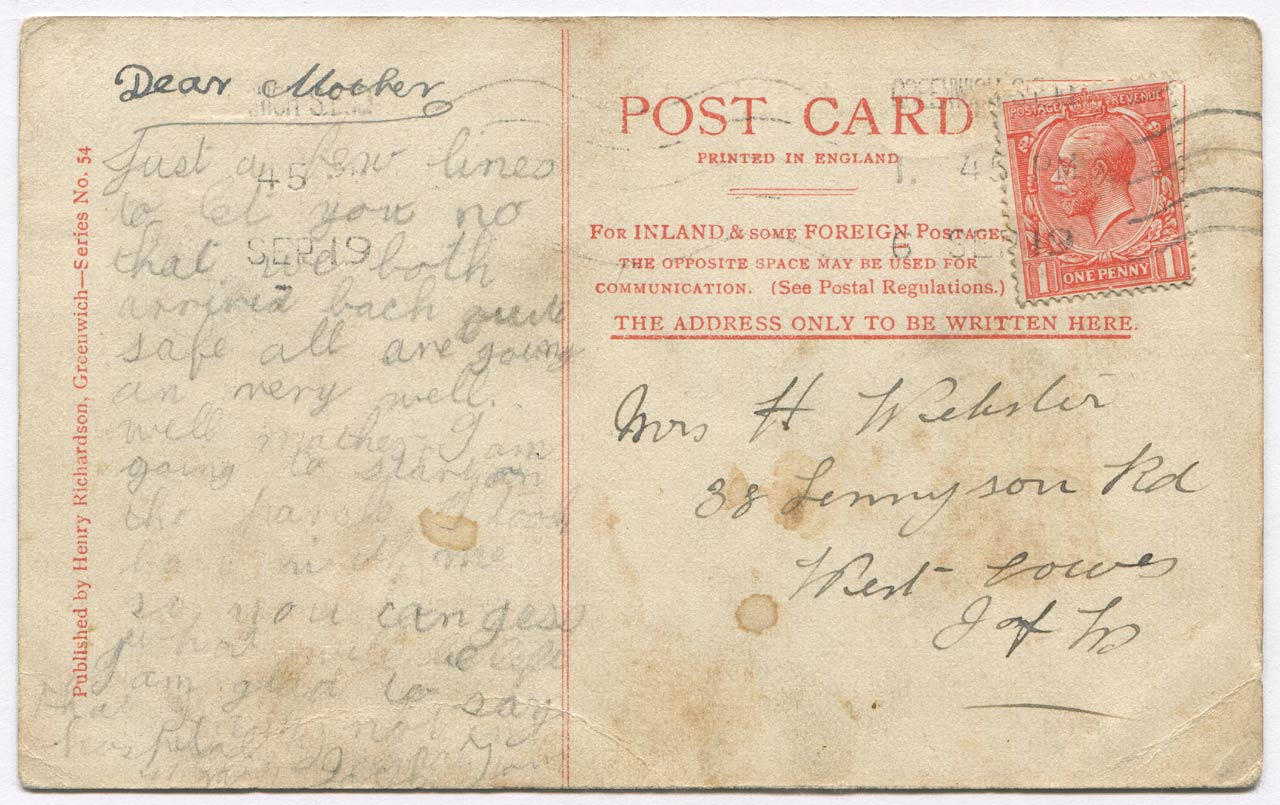 Dear Mother
Just a few lines
to let you no
that we both
arrived back quite
safe all are going
an very well.
well mother I am
going to start on
the I took
back with me
so you can gess
what will be left
am glad to say
that not
45
SEP 19
Published by Henry Richardson, Greenwich—Series No. 54
POST CARD
PRINTED IN ENGLAND
FOR INLAND & SOME FOREIGN POSTAGE,
THE OPPOSITE SPACE MAY BE USED FOR
COMMUNICATION. (See Postal Regulations.)
THE ADDRESS ONLY TO BE WRITTEN HERE.
GREENWICH S.E.
1. 45 PM
6 SEP 19
POSTAGE REVENUE
1 ONE PENNY 1
Mrs H Webster
38 Tennyson Rd
West Cowes
I of W